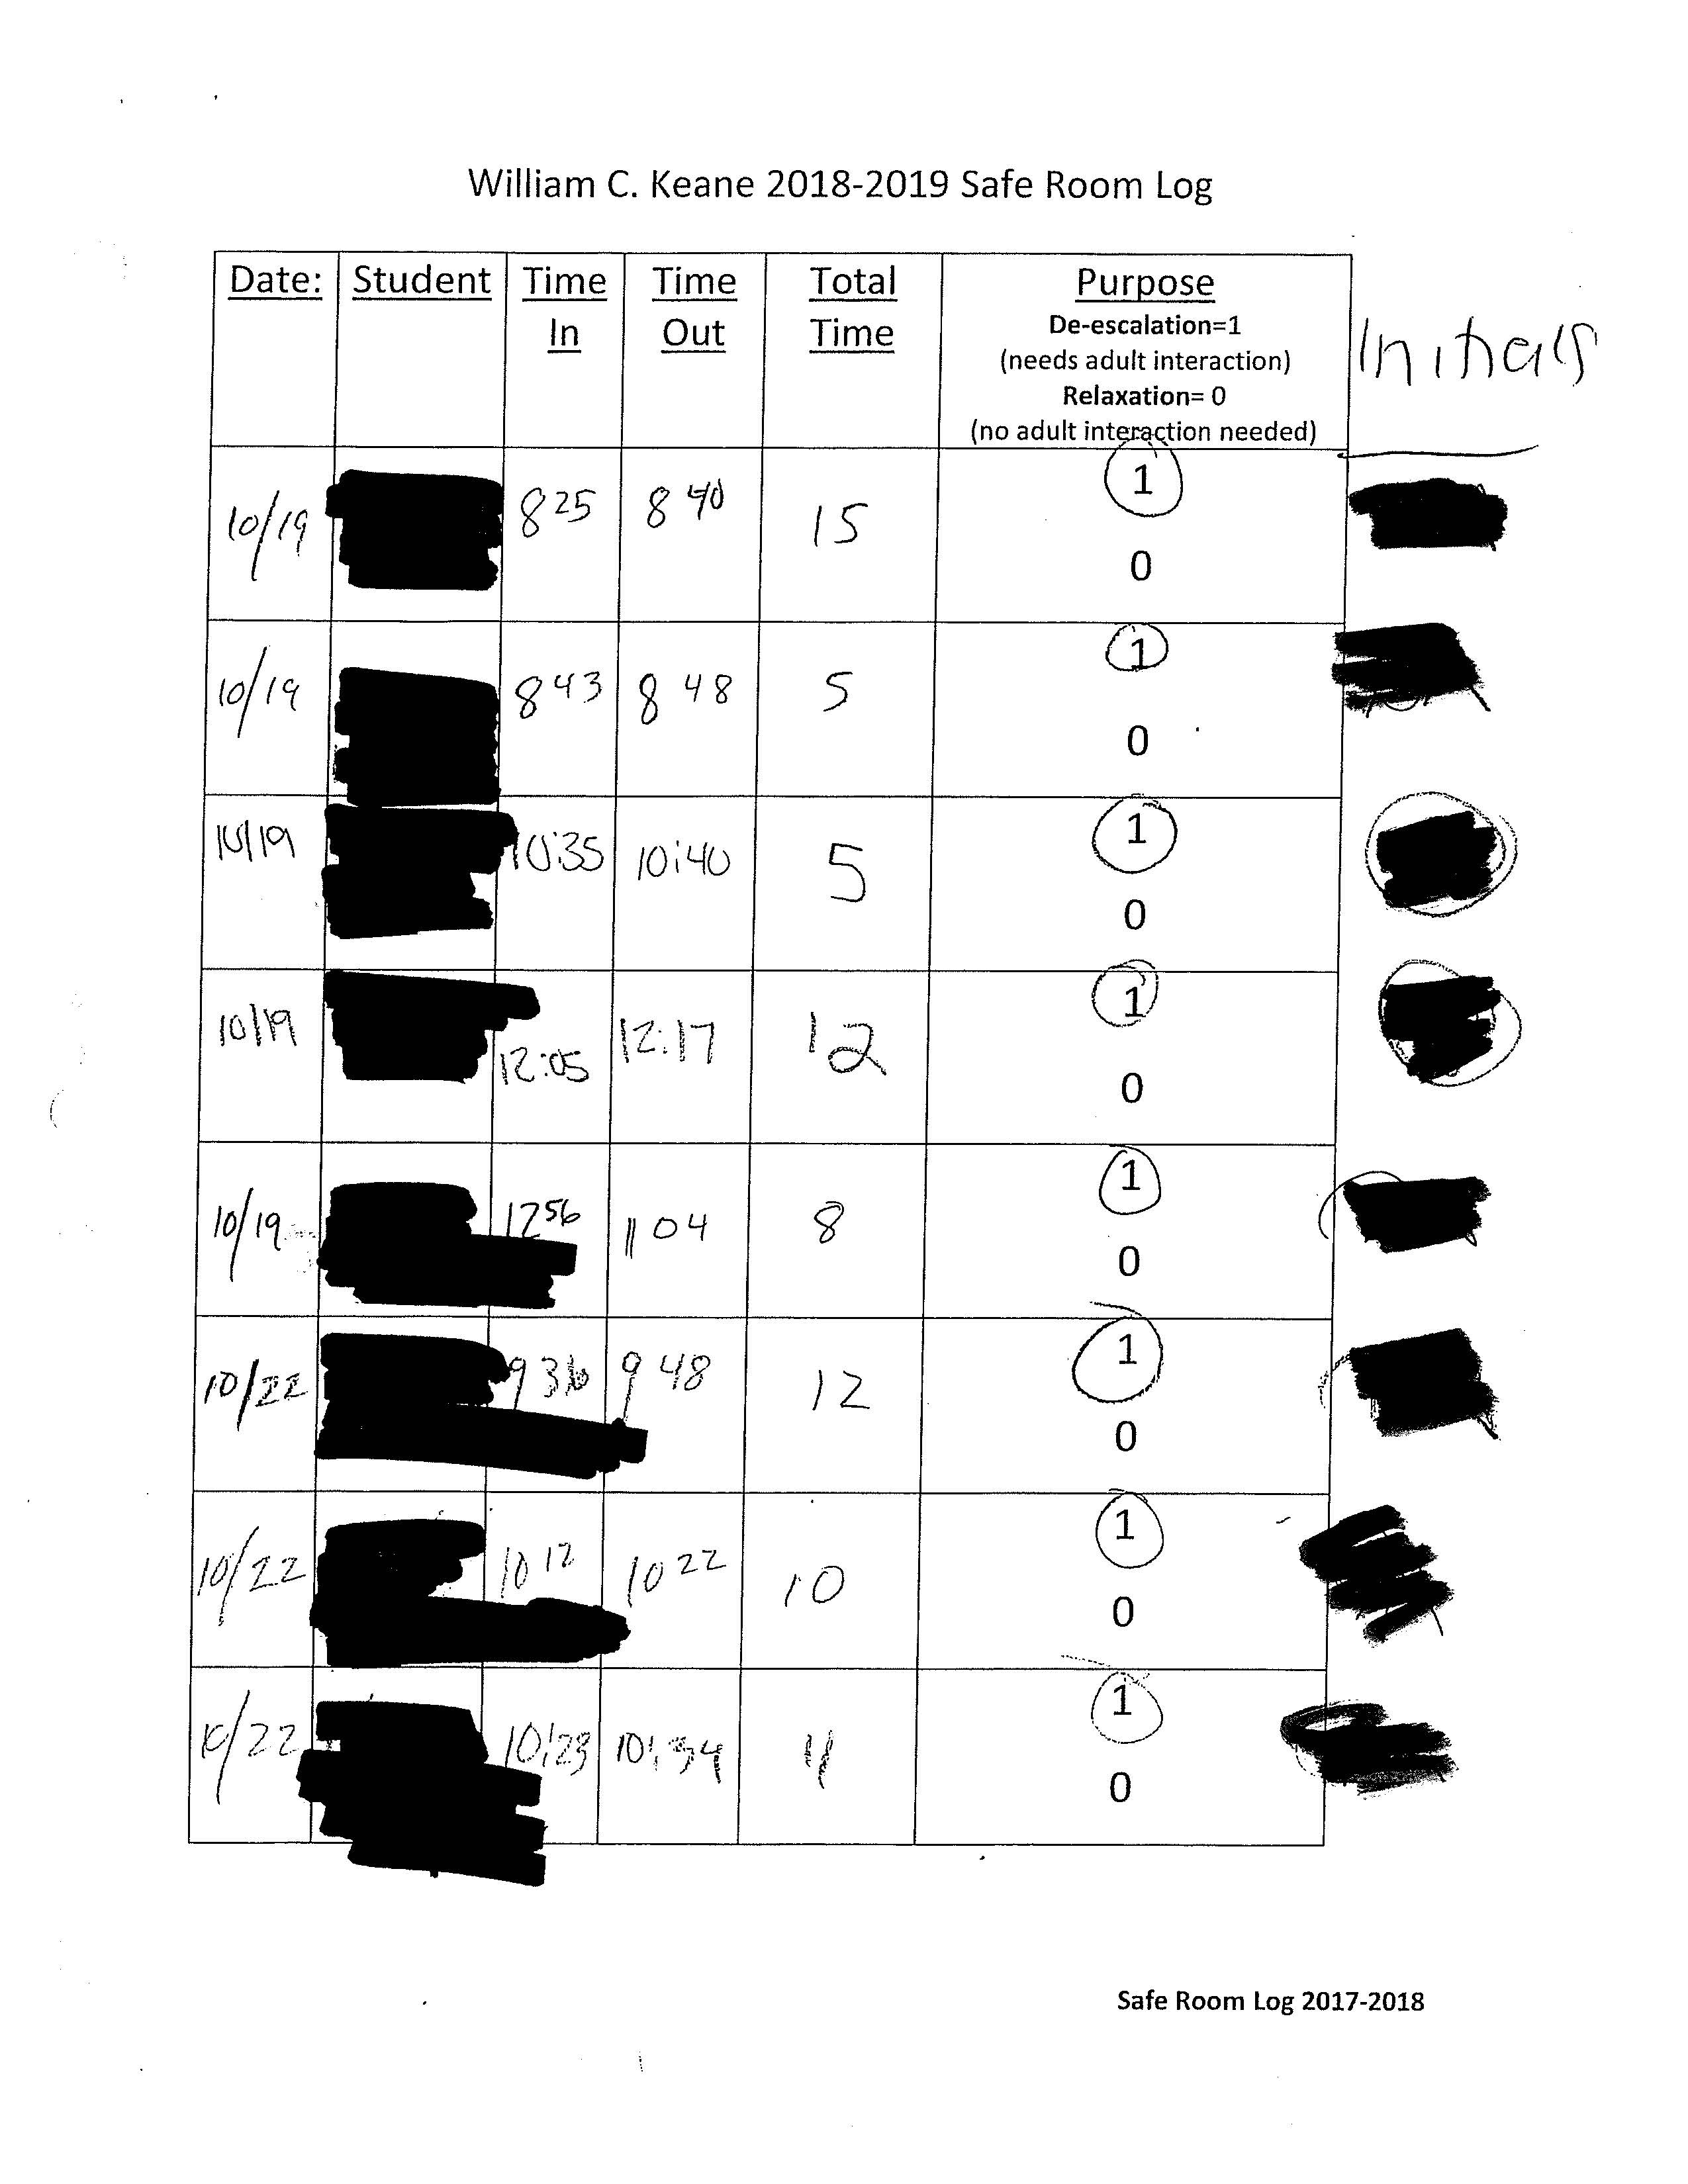 William C. Keane 2018-2019 Safe Room Log
Date: Student Time In Time Out Total Time Purpose
De-escalation=1
(needs adult interaction)
Relaxation= 0
(no adult interaction needed)
Initials
10/19 8 25 8 40 15 1
0
10/19 8 43 8 48 5 1
0
10/19 10:35 10:40 5 1
0
10/19 12:05 12:17 12 1
0
10/19 12 56 1 04 8 1
0
10/22 9 36 9 48 12 1
0
10/22 10 12 10 22 10 1
0
10/22 10:23 10:34 1
0
Safe Room Log 2017-2018